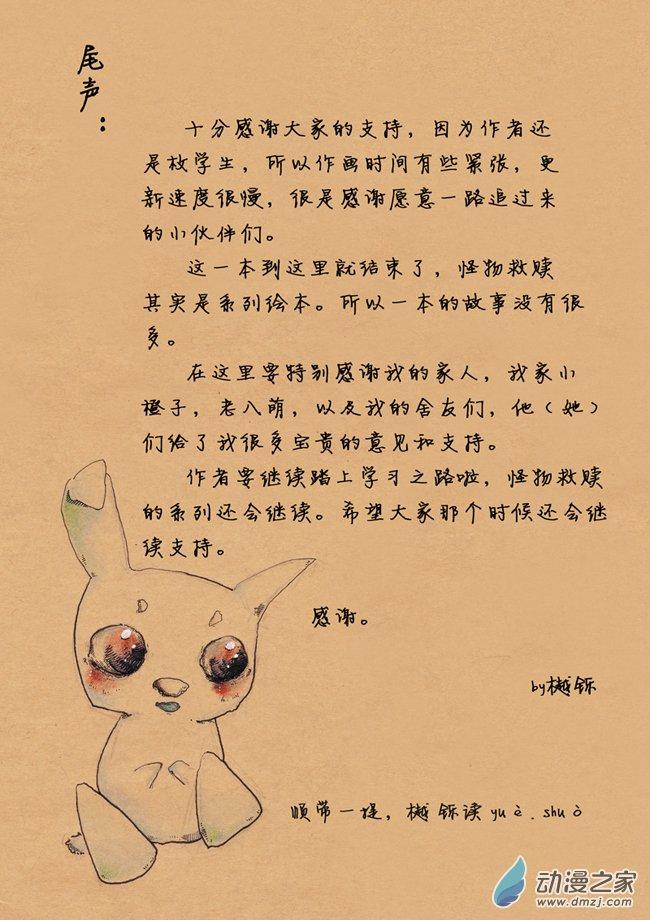 尾声：
十分感谢大家的支持，因为作者还
是枚学生，所以作画时间有些紧张，更
新速度很慢，很是感谢愿意一路追过来
的小伙伴们。
这一本到这里就结束了，怪物救赎
其实是系列绘本。所以一本的故事没有很
多。
在这里要特别感谢我的家人，我家小
橙子，老八萌，以及我的舍友们，他（她）
们给了我很多宝贵的意见和支持。
作者要继续踏上学习之路啦，怪物救赎
的系列还会继续。希望大家那个时候还会继
续支持。
感谢。
by樾铄
顺带一提，樾铄读yuè.shuò
动漫之家
www.dmzj.com